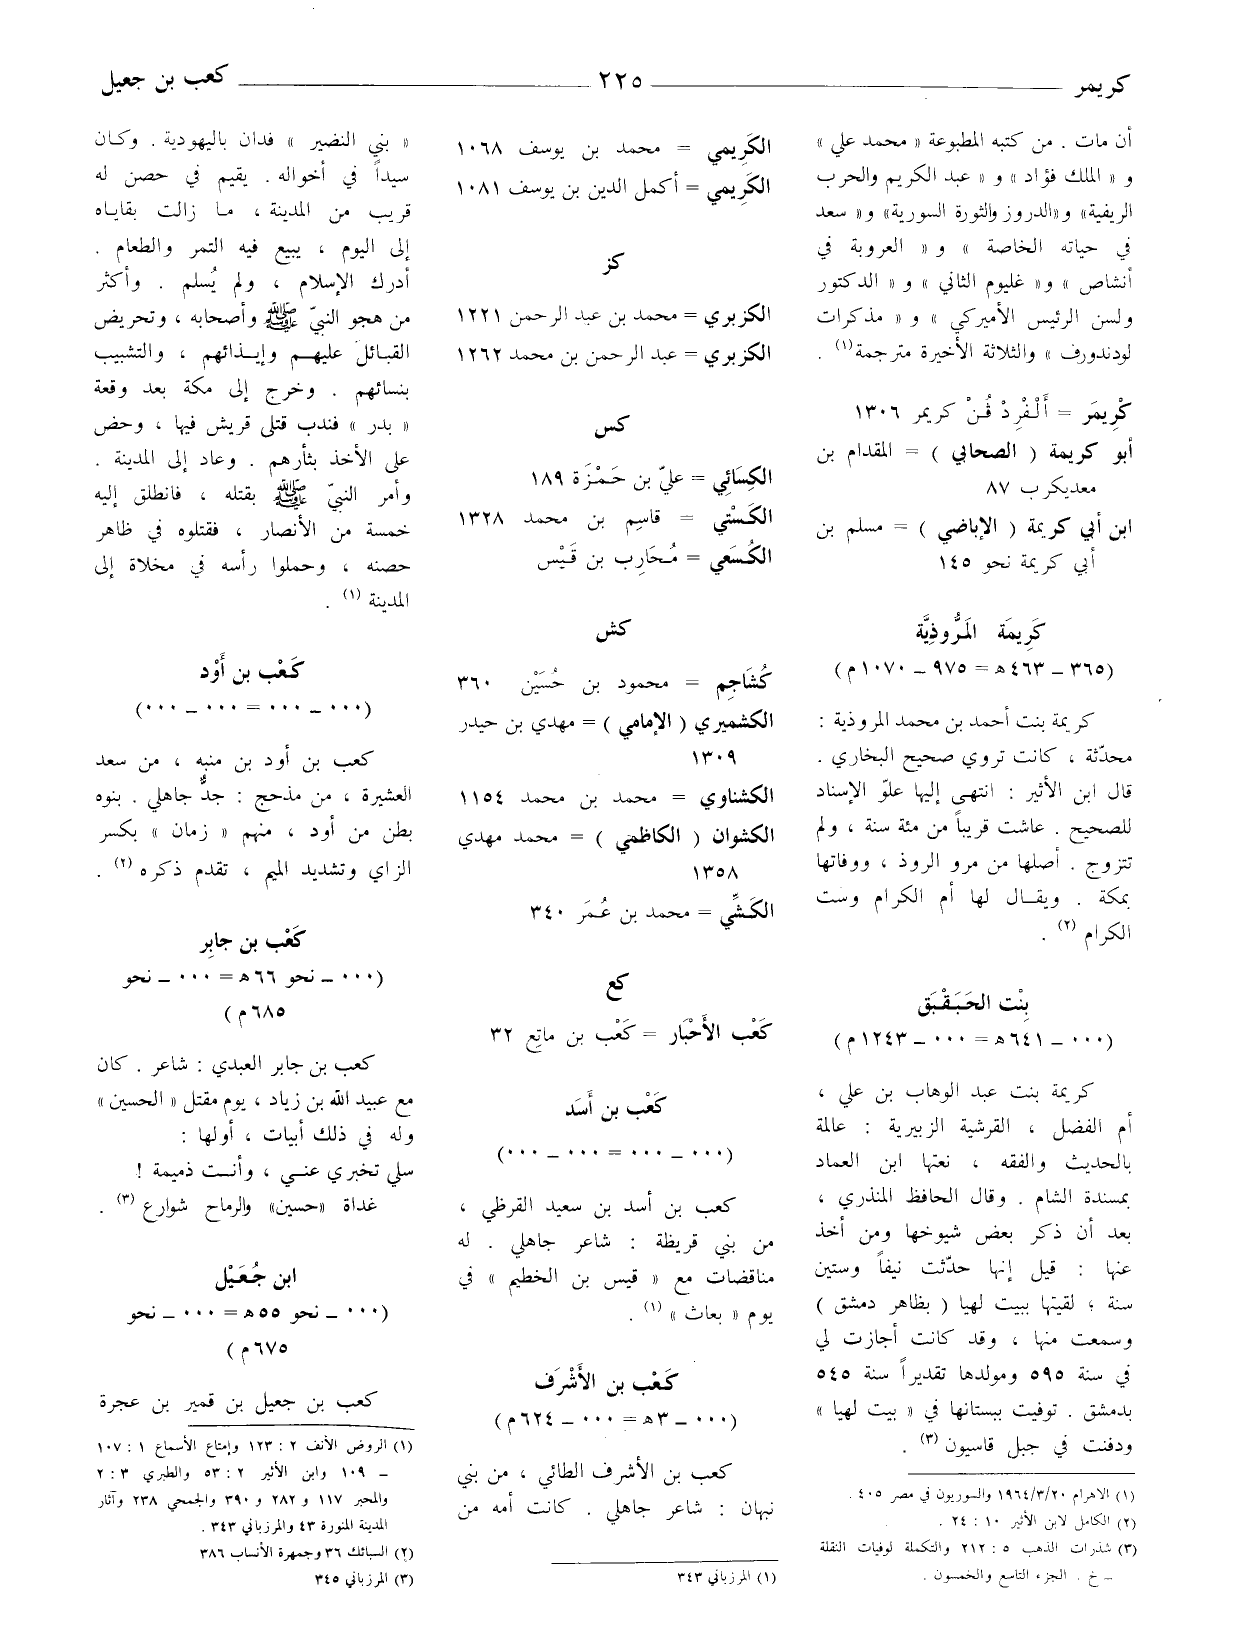 كريمر ٢٢٥ كعب بن جعيل
أن مات . من كتبه المطبوعة « محمد علي »
و « الملك فؤاد » و « عبد الكريم والحرب
الريفية» و«الدروز والثورة السورية» و« سعد
في حياته الخاصة » و « العروبة في
أنشاص » و« غليوم الثاني » و « الدكتور
ولسن الرئيس الأميركي » و « مذكرات
لودندورف » والثلاثة الأخيرة مترجمة (١) .
كْرِيمَر = أَلْفْرِدْ فُنْ كريمر ١٣٠٦
أبو كريمة ( الصحابي ) = المقدام بن
معديكرب ٨٧
ابن أبي كريمة ( الإباضي ) = مسلم بن
أبي كريمة نحو ١٤٥
كَرِيمَة المَرُّوذِيَّة
(٣٦٥ ــ ٤٦٣ هـ = ٩٧٥ ــ ١٠٧٠ م)
كريمة بنت أحمد بن محمد المروذية :
محدّثة ، كانت تروي صحيح البخاري .
قال ابن الأثير : انتهى إليها علوّ الإسناد
للصحيح . عاشت قريباً من مئة سنة ، ولم
تتزوج . أصلها من مرو الروذ ، ووفاتها
بمكة . ويقـال لها أم الكرام وست
الكرام (٢) .
بِنْت الحَبَقْبَق
(٠٠٠ ــ ٦٤١ هـ = ٠٠٠ ــ ١٢٤٣ م)
كريمة بنت عبد الوهاب بن علي ،
أم الفضل ، القرشية الزبيرية : عالمة
بالحديث والفقه ، نعتها ابن العماد
بمسندة الشام . وقال الحافظ المنذري ،
بعد أن ذكر بعض شيوخها ومن أخذ
عنها : قيل إنها حدّثت نيفاً وستين
سنة ؛ لقيتها ببيت لهيا ( بظاهر دمشق )
وسمعت منها ، وقد كانت أجازت لي
في سنة ٥٩٥ ومولدها تقديراً سنة ٥٤٥
بدمشق . توفيت ببستانها في « بيت لهيا »
ودفنت في جبل قاسيون (٣) .
(١) الاهرام ١٩٦٤/٣/٢٠ والسوريون في مصر ٤٠٥ .
(٢) الكامل لابن الأثير ١٠ : ٢٤ .
(٣) شذرات الذهب ٥ : ٢١٢ والتكملة لوفيات النقلة
ــ خ . الجزء التاسع والخمسون .
الكَرِيمي = محمد بن يوسف ١٠٦٨
الكَرِيمي = أكمل الدين بن يوسف ١٠٨١
كز
الكزبري = محمد بن عبد الرحمن ١٢٢١
الكزبري = عبد الرحمن بن محمد ١٢٦٢
كس
الكِسَائِي = عليّ بن حَمْزَة ١٨٩
الكَسْتي = قاسم بن محمد ١٣٢٨
الكُسَعي = مُحَارِب بن قَيْس
كش
كُشَاجِم = محمود بن حُسَيْن ٣٦٠
الكشميري ( الإمامي ) = مهدي بن حيدر
١٣٠٩
الكشناوي = محمد بن محمد ١١٥٤
الكشوان ( الكاظمي ) = محمد مهدي
١٣٥٨
الكَشِّي = محمد بن عُمَر ٣٤٠
كع
كَعْب الأَحْبَار = كَعْب بن ماتِع ٣٢
كَعْب بن أَسَد
(٠٠٠ ــ ٠٠٠ = ٠٠٠ ــ ٠٠٠)
كعب بن أسد بن سعيد القرظي ،
من بني قريظة : شاعر جاهلي . له
مناقضات مع « قيس بن الخطيم » في
يوم « بعاث » (١) .
كَعْب بن الأَشْرَف
(٠٠٠ ــ ٣ هـ = ٠٠٠ ــ ٦٢٤ م)
كعب بن الأشرف الطائي ، من بني
نبهان : شاعر جاهلي . كانت أمه من
(١) المرزباني ٣٤٣
« بني النضير » فدان باليهودية . وكـان
سيداً في أخواله . يقيم في حصن له
قريب من المدينة ، مـا زالت بقايـاه
إلى اليوم ، يبيع فيه التمر والطعام .
أدرك الإسلام ، ولم يُسلم . وأكثر
من هجو النبيّ ﷺ وأصحابه ، وتحريض
القبائل عليهـم وإيـذائهم ، والتشبيب
بنسائهم . وخرج إلى مكة بعد وقعة
« بدر » فندب قتلى قريش فيها ، وحض
على الأخذ بثأرهم . وعاد إلى المدينة .
وأمر النبيّ ﷺ بقتله ، فانطلق إليه
خمسة من الأنصار ، فقتلوه في ظاهر
حصنه ، وحملوا رأسه في مخلاة إلى
المدينة (١) .
كَعْب بن أَوْد
(٠٠٠ ــ ٠٠٠ = ٠٠٠ ــ ٠٠٠)
كعب بن أود بن منبه ، من سعد
العشيرة ، من مذحج : جدٌّ جاهلي . بنوه
بطن من أود ، منهم « زمان » بكسر
الزاي وتشديد الميم ، تقدم ذكره (٢) .
كَعْب بن جابِر
(٠٠٠ ــ نحو ٦٦ هـ = ٠٠٠ ــ نحو
٦٨٥ م)
كعب بن جابر العبدي : شاعر . كان
مع عبيد الله بن زياد ، يوم مقتل « الحسين »
وله في ذلك أبيات ، أولها :
سلي تخبري عنـي ، وأنـت ذميمة !
غداة «حسين» والرماح شوارع (٣) .
ابن جُعَيْل
(٠٠٠ ــ نحو ٥٥ هـ = ٠٠٠ ــ نحو
٦٧٥ م)
كعب بن جعيل بن قمير بن عجرة
(١) الروض الأنف ٢ : ١٢٣ وإمتاع الأسماع ١ : ١٠٧
ــ ١٠٩ وابن الأثير ٢ : ٥٣ والطبري ٣ : ٢
والمحبر ١١٧ و ٢٨٢ و ٣٩٠ والجمحي ٢٣٨ وآثار
المدينة المنورة ٤٣ والمرزباني ٣٤٣ .
(٢) السبائك ٣٦ وجمهرة الأنساب ٣٨٦
(٣) المرزباني ٣٤٥